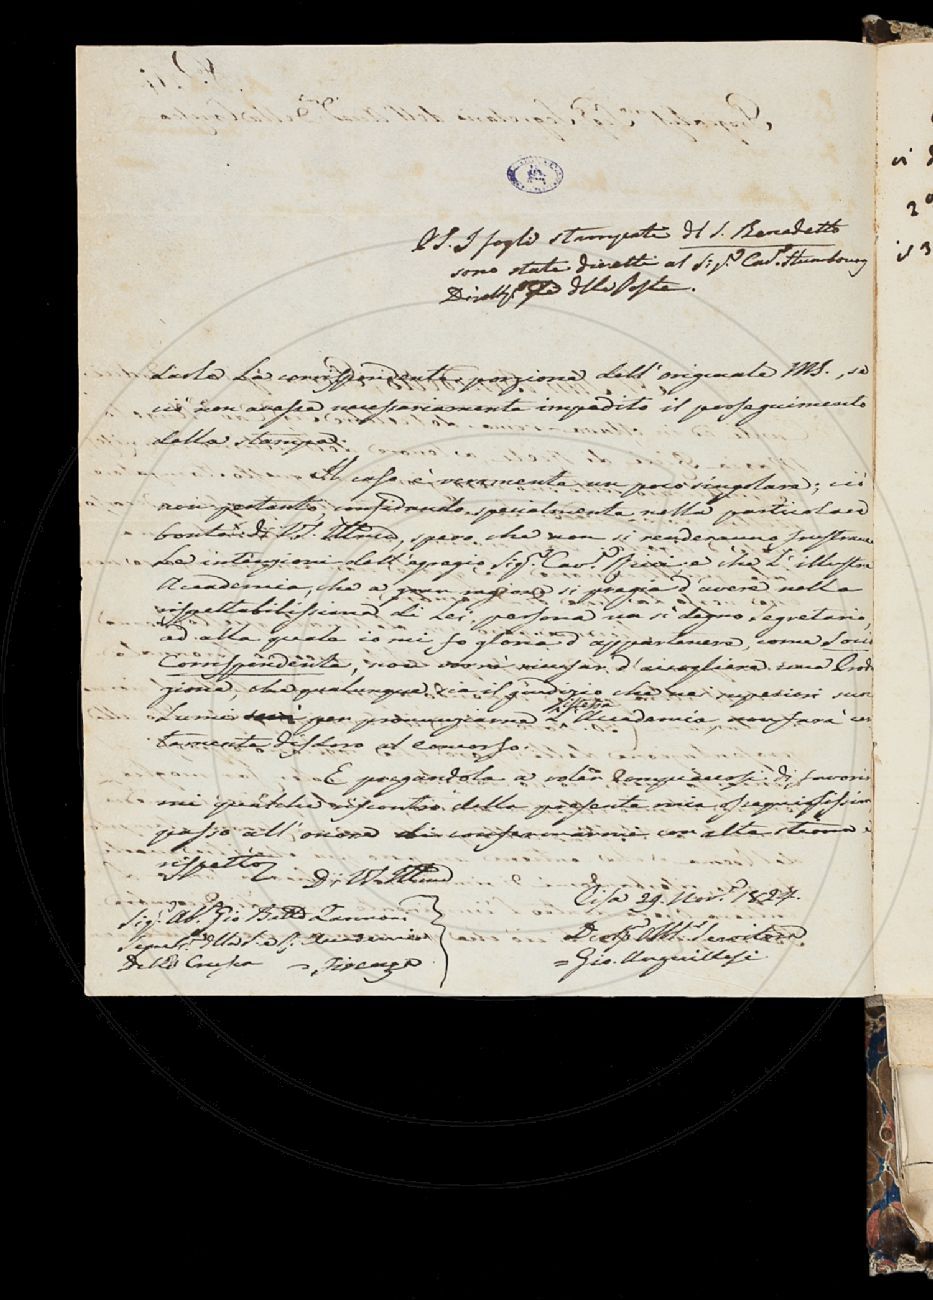 PS. I fogli stampati del S. Benedetto
sono stati diretti al Sig.r Cav.r
Dirett.e delle Poste.
darle la corrispondente porzione dell'originale MS., se
ciò non avesse necessariamente impedito il proseguimento
della stampa.
Il caso è veramente un poco singolare; ciò
non pertanto, confidando specialmente nella particolare
bontà di V.S. Ill.ma, spero che non si renderanno frustranee
le intenzioni dell'egregio Sig.r Cav.r Ricci e che l'illustre
Accademia, che a gran ragione si pregia d'avere nella
rispettabilissima di Lei persona un sì degno segretario,
ed alla quale io mi fo gloria d'appartenere, come Socio
Corrispondente, non vorrà ricusar d'accogliere una Produ
zione che qualunque sia il giudizio che ne
lumi per pronunziarne l'istessa Accademia, non farà cer
tamente disdoro al concorso.
E pregandola a voler compiacersi di favorir
mi qualche riscontro della presente mia,
passo all'onore di confermarmi con alta stima e
rispetto
Di V.S. Ill.ma
Pisa 29 Nov.e 1824.
Sig.r Ab.e Gio. Batt.a Zannoni
Segret.o della I. e R. Accademia
Della Crusca = Firenze
Dev.mo Obb.mo Servitore
= Gio. Anguillesi